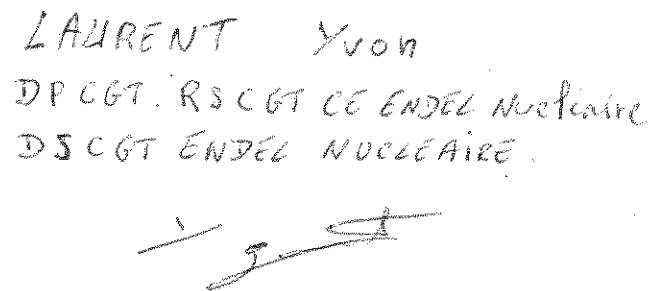 LAURENT Yvon
DP CGT. RS CGT CE ENDEL Nucléaire
DS CGT ENDEL NUCLEAIRE.